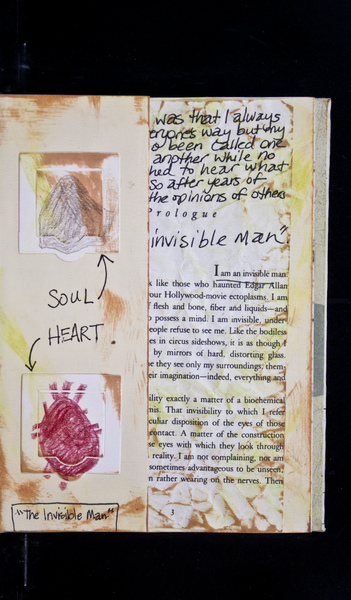 SOUL
HEART.
"The Invisible Man"
was that I always
everyones way but my
been called one
another while no
hed to hear what
So after years of
the opinions of others
Prologue
invisible Man".
I am an invisible man
k like those who haunted Edgar Allan
our Hollywood-movie ectoplasms. I am
flesh and bone, fiber and liquids—and
o possess a mind. I am invisible, under-
eople refuse to see me. Like the bodiless
es in circus sideshows, it is as though I
by mirrors of hard, distorting glass.
e they see only my surroundings, them-
eir imagination—indeed, everything and
ility exactly a matter of a biochemical
mis. That invisibility to which I refer
culiar disposition of the eyes of those
contact. A matter of the construction
se eyes with which they look through
reality. I am not complaining, nor am
sometimes advantageous to be unseen,
n rather wearing on the nerves. Then
3